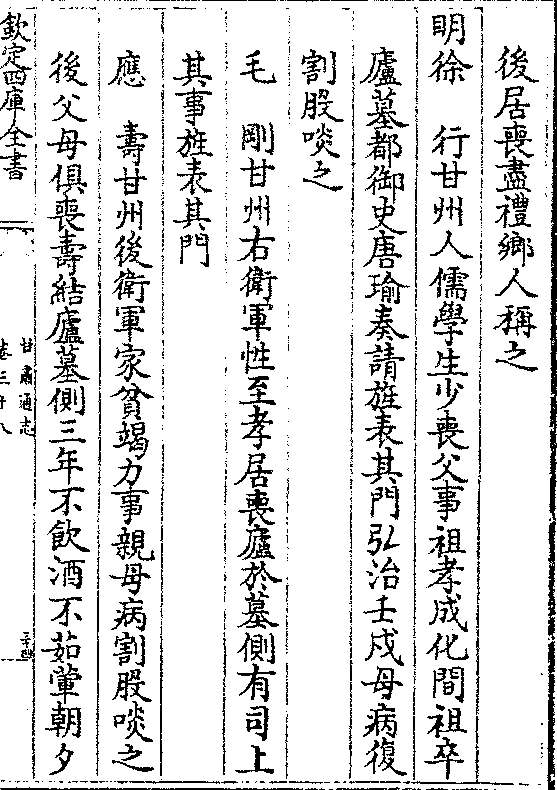 後居喪盡禮鄉人稱之
明徐　行甘州人儒學生少喪父事祖孝成化間祖卒
廬墓都御史唐瑜奏請旌表其門弘治壬戍母病復
割股啖之
毛　剛甘州右衛軍性至孝居喪廬於墓側有司上
其事旌表其門
應　壽甘州後衛軍家貧竭力事親母病割股啖之
後父母俱喪壽結廬墓側三年不飲酒不茹葷朝夕
欽定四庫全書
甘肅通志
卷三十八